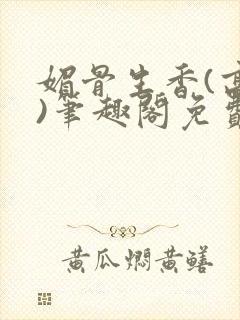 媚骨生香(高
)笔趣阁免费
黄瓜焖黄鳝